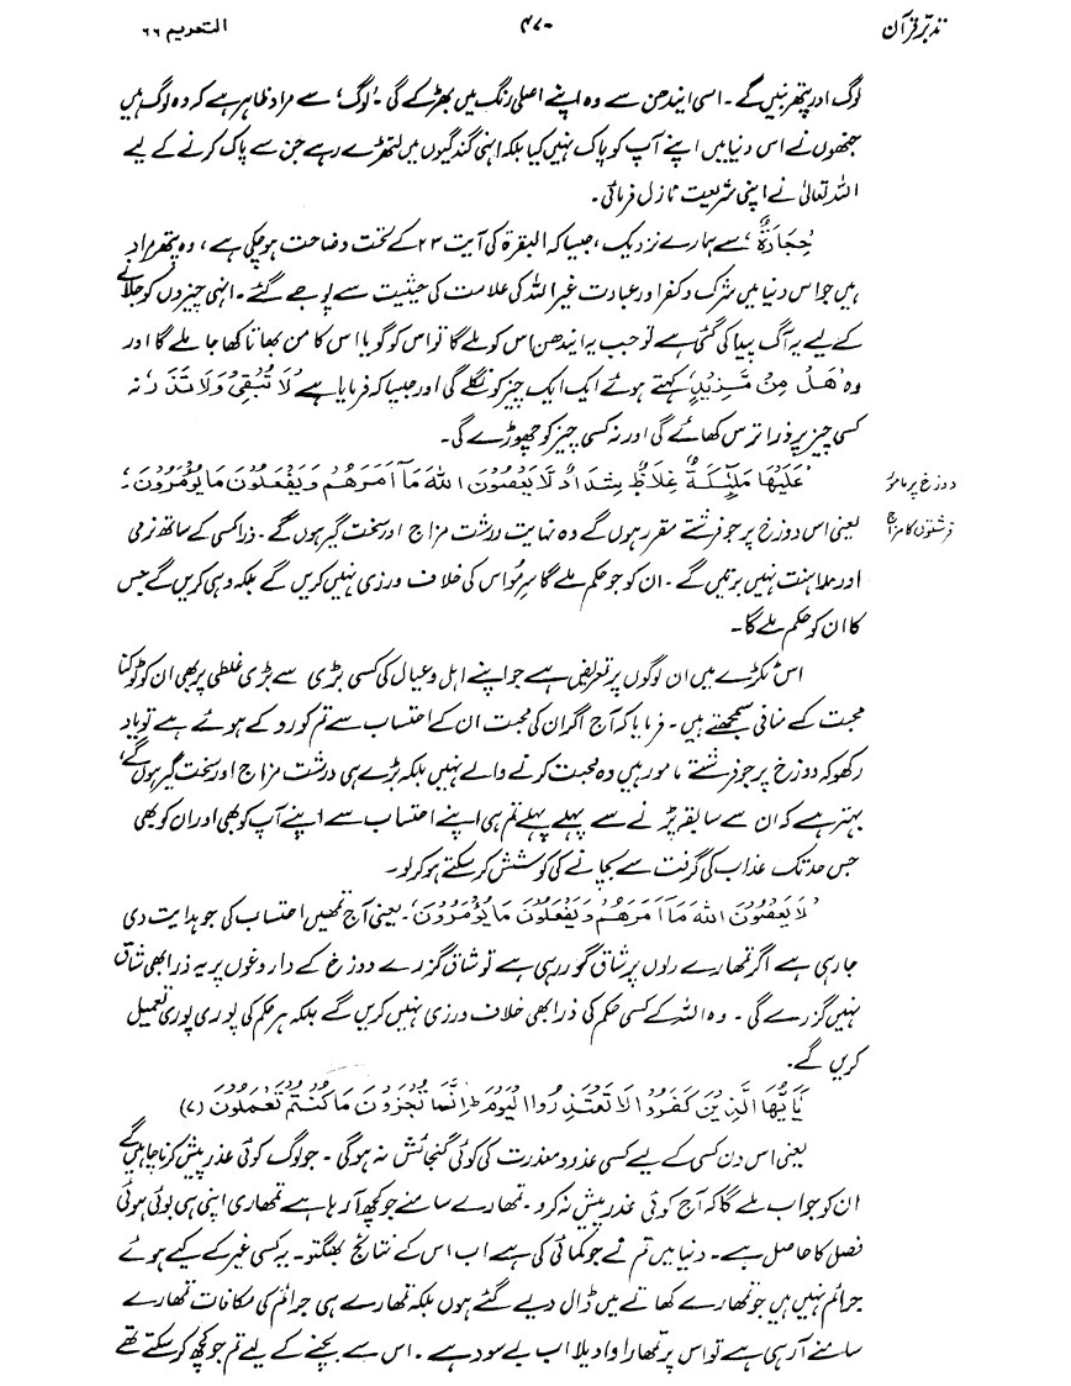 تدبّرِ قرآن ۴۷۰ التحریم ۶۶
لوگ اور پتھر بنیں گے ۔ اسی ایندھن سے وہ اپنے اصلی رنگ میں بھڑکے گی ۔ ’لوگ‘ سے مراد ظاہر ہے کہ وہ لوگ ہیں
جنھوں نے اس دنیا میں اپنے آپ کو پاک نہیں کیا بلکہ انہی گندگیوں میں لتھڑے رہے جن سے پاک کرنے کے لیے
اللہ تعالیٰ نے اپنی شریعت نازل فرمائی ۔
’حِجَارَةٌ‘ سے ہمارے نزدیک ، جیسا کہ البقرۃ کی آیت ۲۳ کے تحت وضاحت ہو چکی ہے ، وہ پتھر مراد
ہیں جو اس دنیا میں شرک و کفر اور عبادت غیر اللہ کی علامت کی حیثیت سے پوجے گئے ۔ انہی چیزوں کو جلانے
کے لیے یہ آگ پیدا کی گئی ہے تو جب یہ ایندھن اس کو ملے گا تو اس کو گویا اس کا من بھاتا کھاجا ملے گا اور
وہ ’هَلْ مِنْ مَّزِیْدٍ‘ کہتے ہوئے ایک ایک چیز کو نگلے گی اور جیسا کہ فرمایا ہے ’لَا تُبْقِیْ وَلَا تَذَرُ‘ نہ
کسی چیز پر ذرا ترس کھائے گی اور نہ کسی چیز کو چھوڑے گی ۔
’عَلَیْهَا مَلٰٓئِكَةٌ غِلَاظٌ شِدَادٌ لَّا یَعْصُوْنَ اللهَ مَآ اَمَرَهُمْ وَیَفْعَلُوْنَ مَا یُؤْمَرُوْنَ‘۔
دوزخ پر مامور
فرشتوں کا مزاج
یعنی اس دوزخ پر جو فرشتے مقرر ہوں گے وہ نہایت درشت مزاج اور سخت گیر ہوں گے ۔ ذرا کسی کے ساتھ نرمی
اور مداہنت نہیں برتیں گے ۔ ان کو جو حکم ملے گا سرِمُو اس کی خلاف ورزی نہیں کریں گے بلکہ وہی کریں گے جس
کا ان کو حکم ملے گا ۔
اس ٹکڑے میں ان لوگوں پر تعریض ہے جو اپنے اہل و عیال کی کسی بڑی سے بڑی غلطی پر بھی ان کو ٹوکنا
محبت کے منافی سمجھتے ہیں ۔ فرمایا کہ آج اگر ان کی محبت ان کے احتساب سے تم کو روکے ہوئے ہے تو یاد
رکھو کہ دوزخ پر جو فرشتے مامور ہیں وہ محبت کرنے والے نہیں بلکہ بڑے ہی درشت مزاج اور سخت گیر ہوں گے،
بہتر ہے کہ ان سے سابقہ پڑنے سے پہلے پہلے تم ہی اپنے احتساب سے اپنے آپ کو بھی اور ان کو بھی
جس حد تک عذاب کی گرفت سے بچانے کی کوشش کر سکتے ہو کر لو ۔
’لَا یَعْصُوْنَ اللهَ مَآ اَمَرَهُمْ وَیَفْعَلُوْنَ مَا یُؤْمَرُوْنَ‘۔ یعنی آج تمھیں احتساب کی جو ہدایت دی
جا رہی ہے اگر تمھارے دلوں پر شاق گزر رہی ہے تو شاق گزرے دوزخ کے داروغوں پر یہ ذرا بھی شاق
نہیں گزرے گی ۔ وہ اللہ کے کسی حکم کی ذرا بھی خلاف ورزی نہیں کریں گے بلکہ ہر حکم کی پوری پوری تعمیل
کریں گے ۔
یٰٓاَیُّهَا الَّذِیْنَ كَفَرُوْا لَا تَعْتَذِرُوا الْیَوْمَ ط اِنَّمَا تُجْزَوْنَ مَا كُنْتُمْ تَعْمَلُوْنَ (۷)
یعنی اس دن کسی کے لیے کسی عذر و معذرت کی کوئی گنجائش نہ ہوگی ۔ جو لوگ کوئی عذر پیش کرنا چاہیں گے
ان کو جواب ملے گا کہ آج کوئی عذر پیش نہ کرو ۔ تمھارے سامنے جو کچھ آ رہا ہے تمھاری اپنی ہی بوئی ہوئی
فصل کا حاصل ہے ۔ دنیا میں تم نے جو کمائی کی ہے اب اس کے نتائج بھگتو ۔ یہ کسی غیر کے کیے ہوئے
جرائم نہیں ہیں جو تمھارے کھاتے میں ڈال دیے گئے ہوں بلکہ تمھارے ہی جرائم کی مکافات تمھارے
سامنے آ رہی ہے تو اس پر تمھارا واویلا اب بے سود ہے ۔ اس سے بچنے کے لیے تم جو کچھ کر سکتے تھے